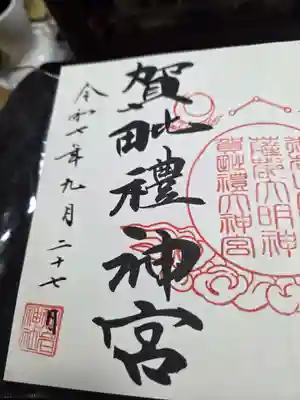 賀毗禮神宮
令和七年九月二十七日
薩都大明神
賀毗禮大神宮
神社